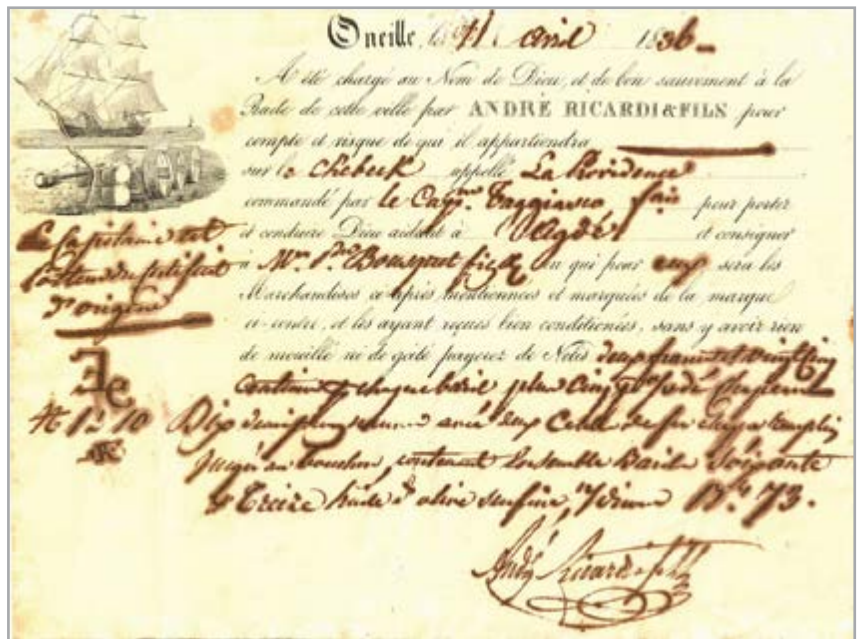 Oneille, 11. avril 1836
A été chargé au Nom de Dieu, et de bon sauvement à la
Rade de cette ville par ANDRÉ RICARDI & FILS pour
compte et risque de qui il appartiendra
sur le chebeck appellé La Providence
commandé par le Capne. Taggiasco, fois pour porter
et conduire Dieu aidant à Agde et consigner
à Mr. Pre. Bousquet ou qui pour eux sera les
Marchandises ci-après mentionnées et marquées de la marque
ci-contre, et les ayant reçues bien conditionées, sans y avoir rien
de mouillé ni de gâté payerez de Nolis deux francs et vingt cinq
centimes chaque baril plus cinq
Dix avec deux Cercles de fer chaque remplis
jusqu'au bouchon, contenant Ensemble Barils Soixante
& Treize huile d'olive surfine, 73.
André Ricardi & fils
Le Capitaine est
porteur du certificat
d'origine
# 1 à 10